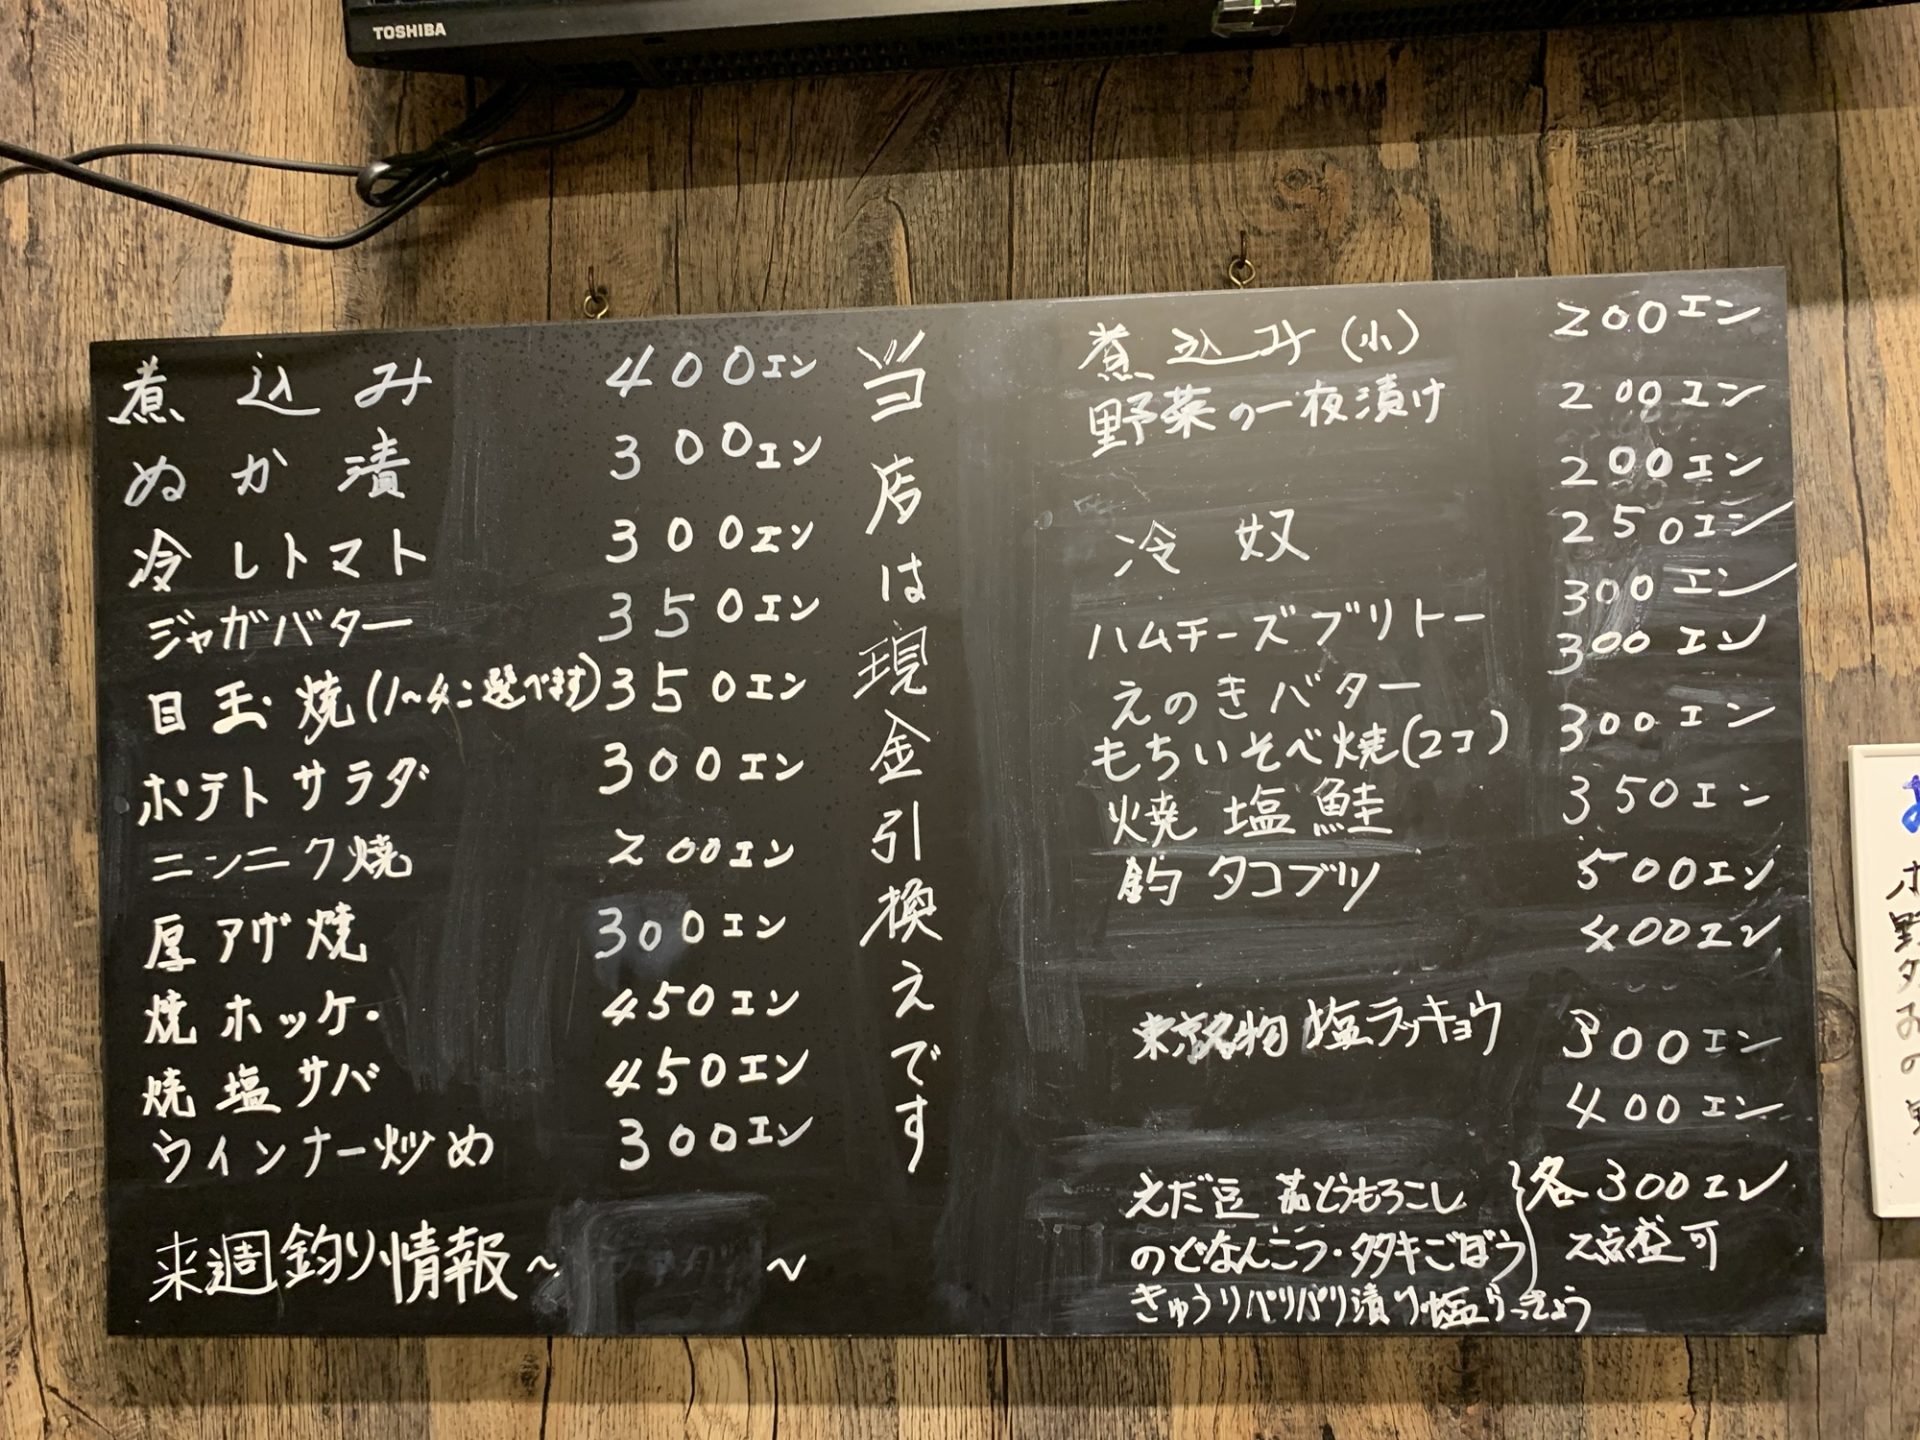 TOSHIBA
煮込み 400エン
ぬか漬 300エン
冷しトマト 300エン
ジャガバター 350エン
目玉焼(1〜4コ選べます) 350エン
ポテトサラダ 300エン
ニンニク焼 200エン
厚アゲ焼 300エン
焼ホッケ 450エン
焼塩サバ 450エン
ウインナー炒め 300エン
来週釣り情報〜 〜
当店は現金引換えです
煮込み(小) 200エン
野菜の一夜漬け 200エン
200エン
冷奴 250エン
ハムチーズブリトー 300エン
えのきバター 300エン
もちいそべ焼(2コ) 300エン
焼塩鮭 350エン
釣タコブツ 500エン
400エン
東京名物 塩ラッキョウ 300エン
400エン
えだ豆 茹どうもろこし
のどなんこつ・タタキごぼう
きゅうりパリパリ漬り塩らっきょう
各300エン
2点盛可